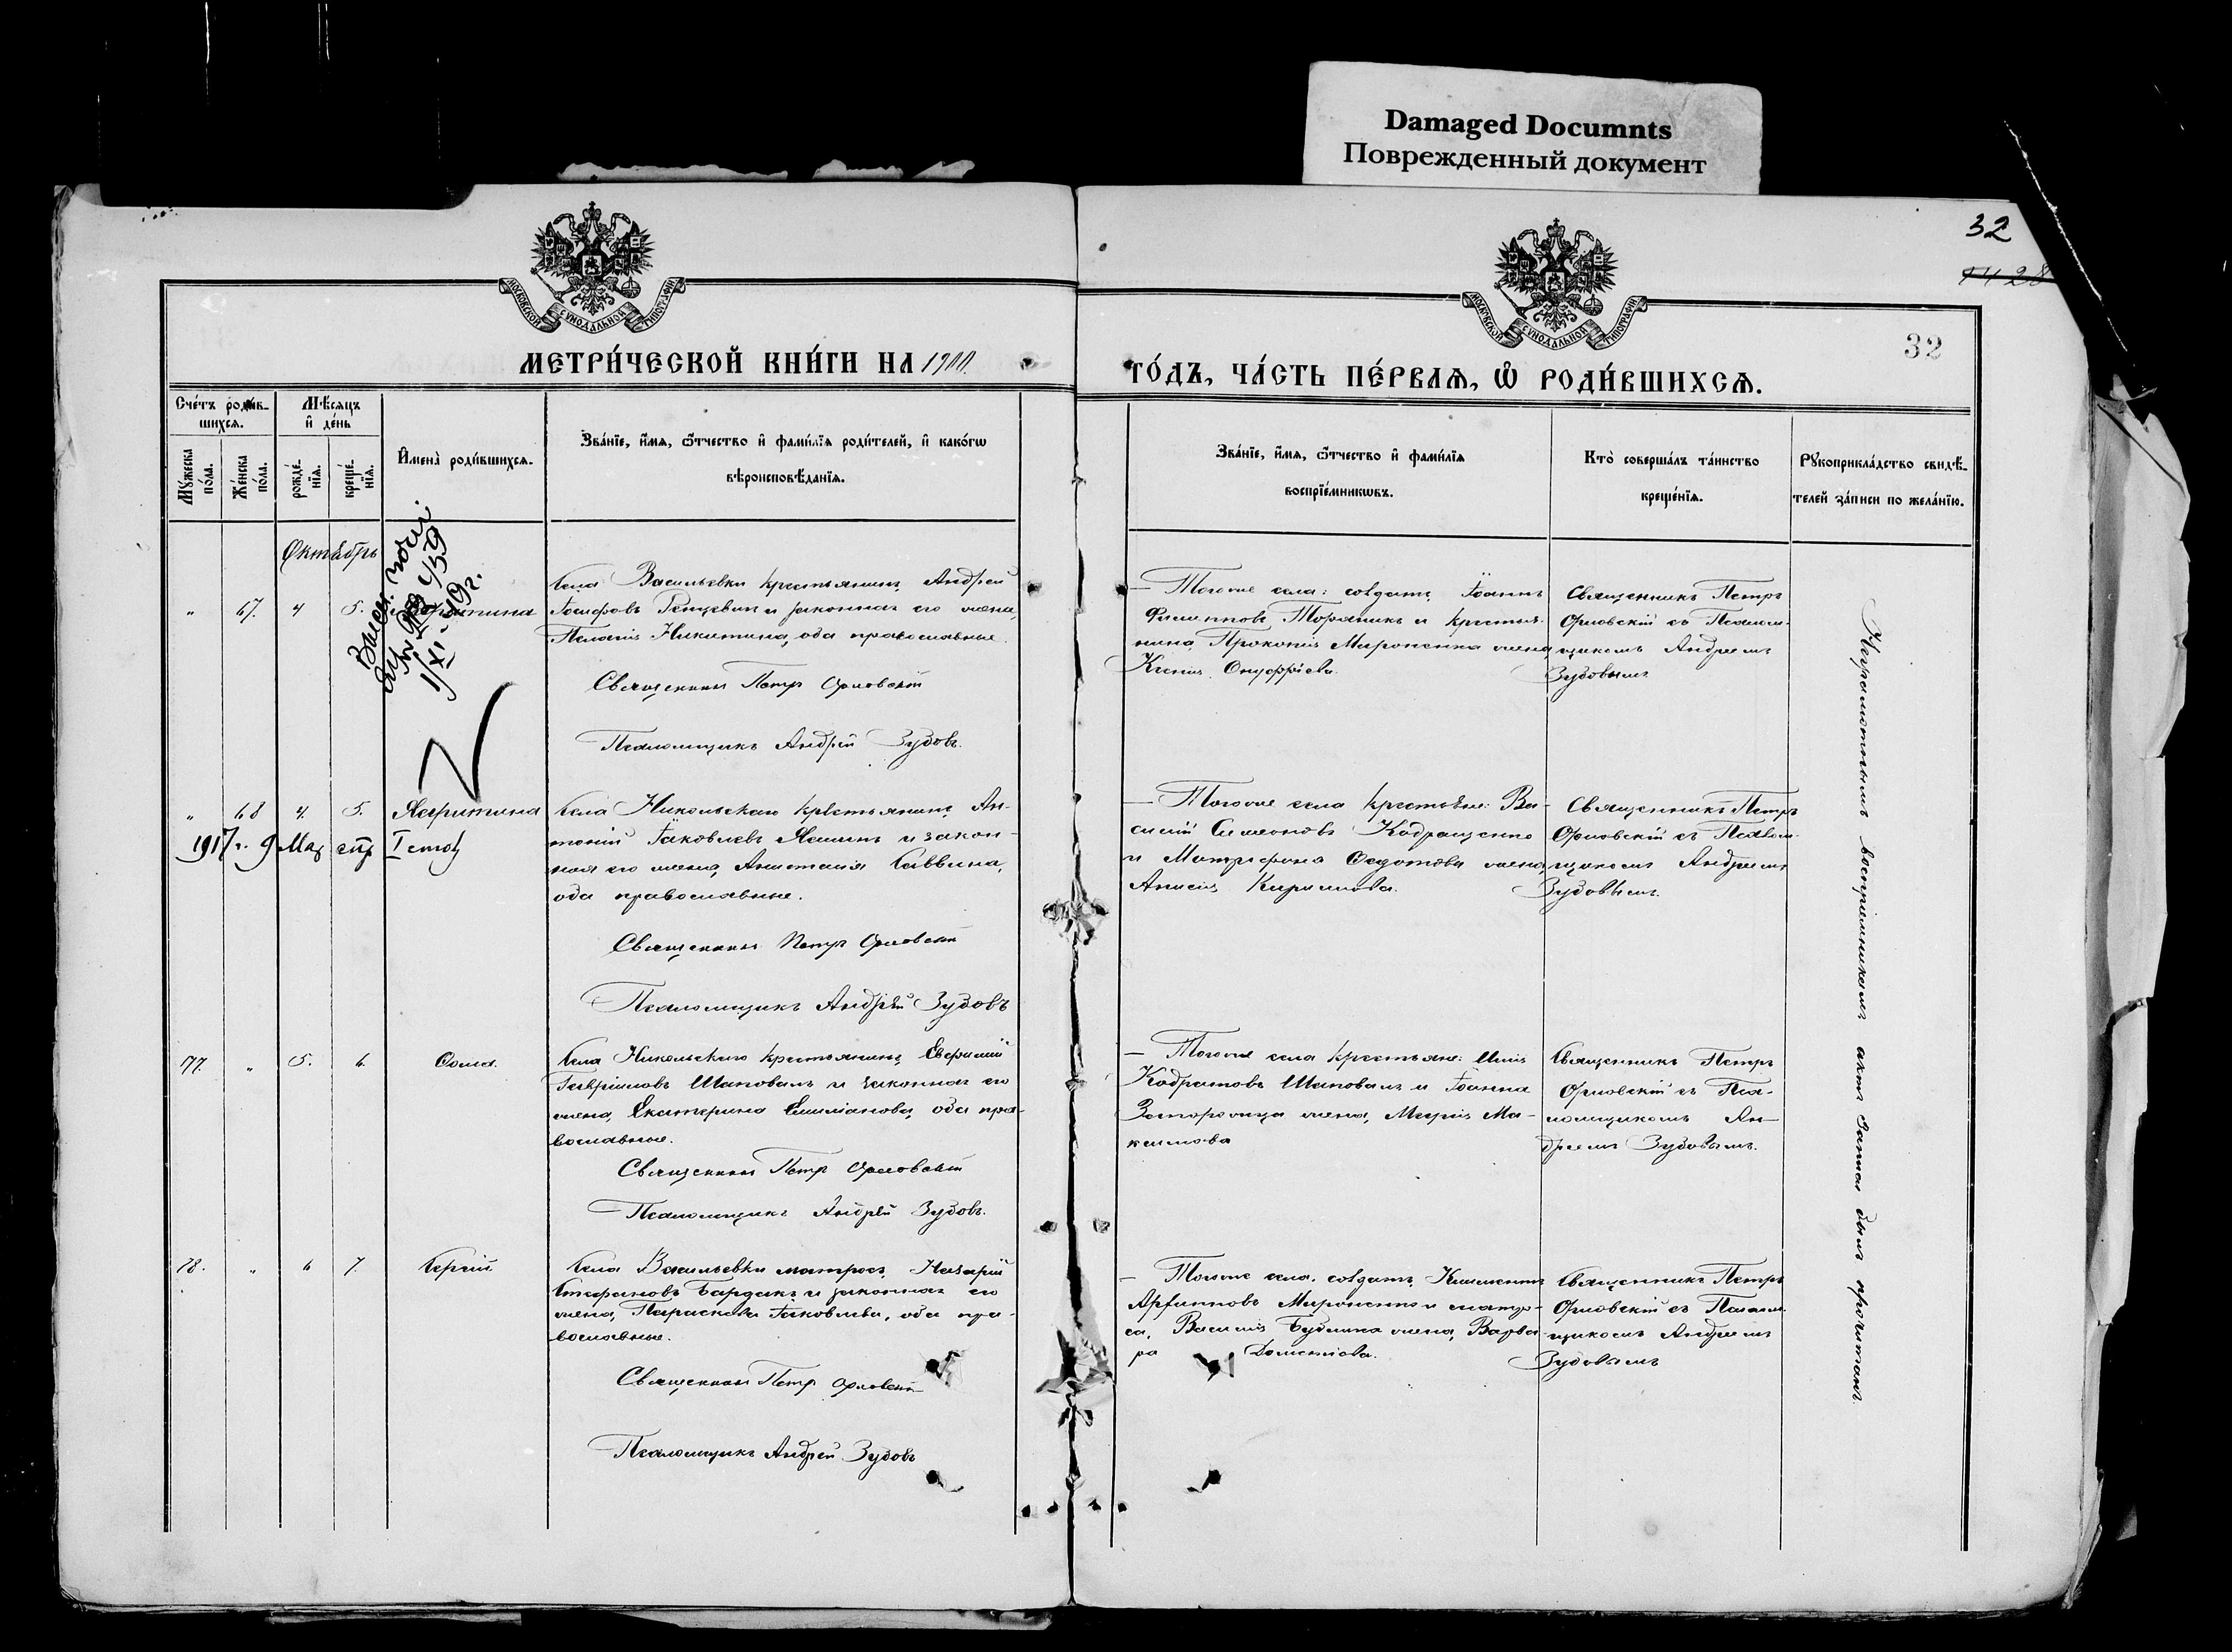 Damaged Documnts
Поврежденный документ
32
1428
32
МОСКОВСКОЙ СѴНОДАЛЬНОЙ ТИПОГРАФІИ
МОСКОВСКОЙ СѴНОДАЛЬНОЙ ТИПОГРАФІИ
МЕТРИ́ЧЕСКОЙ КНИ́ГИ НА 1900
ГО́ДЪ, ЧА́СТЬ ПЕ́РВАЯ, Ѡ҆ РОДИ́ВШИХСЯ.
Сче́тъ роди́в-
шихся.
Мѣ́сяцъ
и҆ де́нь
Мꙋ́жеска
по́ла.
Же́нска
по́ла.
рожде́-
нїя.
креще́-
нїя.
И҆мена̀ роди́вшихся.
Зва́нїе, и҆́мя, ѻ҆́тчество и҆ фами́лїя роди́телей, и҆ како́гѡ
вѣроисповѣ́данїя.
Зва́нїе, и҆́мя, ѻ҆́тчество и҆ фами́лїя
воспрїе́мникѡвъ.
Кто̀ соверша́лъ та́инство
креще́нїя.
Рꙋкоприкла́дство свидѣ́-
телей за́писи по жела́нїю.
Октябрь
" 67. 4 5.
Села Васильевки крестьянинъ Андрей
Іосифовъ и законная его жена,
Пелагія Никитина, оба православные.
Священникъ Петръ Орловскій
Псаломщикъ Андрей Зудовъ.
— Того же села: солдатъ Іоаннъ
Филипповъ и крестья-
нина Прокопія Мироненка жена
Ксенія Онуфріева.
Священникъ Петръ
Орловскій съ Псалом-
щикомъ Андреемъ
Зудовымъ
" 68 4. 5. Харитина
1917 г. 9 Мая
Села Никольскаго крестьянинъ Ан-
тоній Іаковлевъ и закон-
ная его жена, Анастасія Саввина,
оба православные.
Священникъ Петръ Орловскій
Псаломщикъ Андрей Зудовъ
— Того же села крестьяне: Ва-
силій Симеоновъ Кодращенко
и Митрофана Федотова жена,
Анисія Кириллова.
Священникъ Петръ
Орловскій съ Псалом-
щикомъ Андреемъ
Зудовымъ.
77. " 5. 6. Сотеа
Села Никольскаго крестьянинъ, Евфимій
Гавріиловъ Шаповалъ и законная его
жена, Екатерина Емиліанова, оба пра-
вославные.
Священникъ Петръ Орловскій
Псаломщикъ Андрей Зудовъ.
— Того же села крестьяне: Илія
Кодратовъ Шаповалъ и Іоанна
Запорожца жена, Марія Ма-
ксимова
Священникъ Петръ
Орловскій съ Пса-
ломщикомъ Ан-
дреемъ Зудовымъ.
78. " 6 7. Сергій
Села Васильевки матросъ, Назарій
Стефановъ Бардакъ и законная его
жена, Параскева Іаковлева, оба пра-
вославные.
Священникъ Петръ Орловскій
Псаломщикъ Андрей Зудовъ
— Того же села: солдатъ, Климентъ
Мироненко и матро-
са, Василія жена, Варва-
ра Дометіова.
Священникъ Петръ
Орловскій съ Псалом-
щикомъ Андреемъ
Зудовымъ
Неграмотнымъ воспріемникамъ актъ записи былъ прочитанъ.